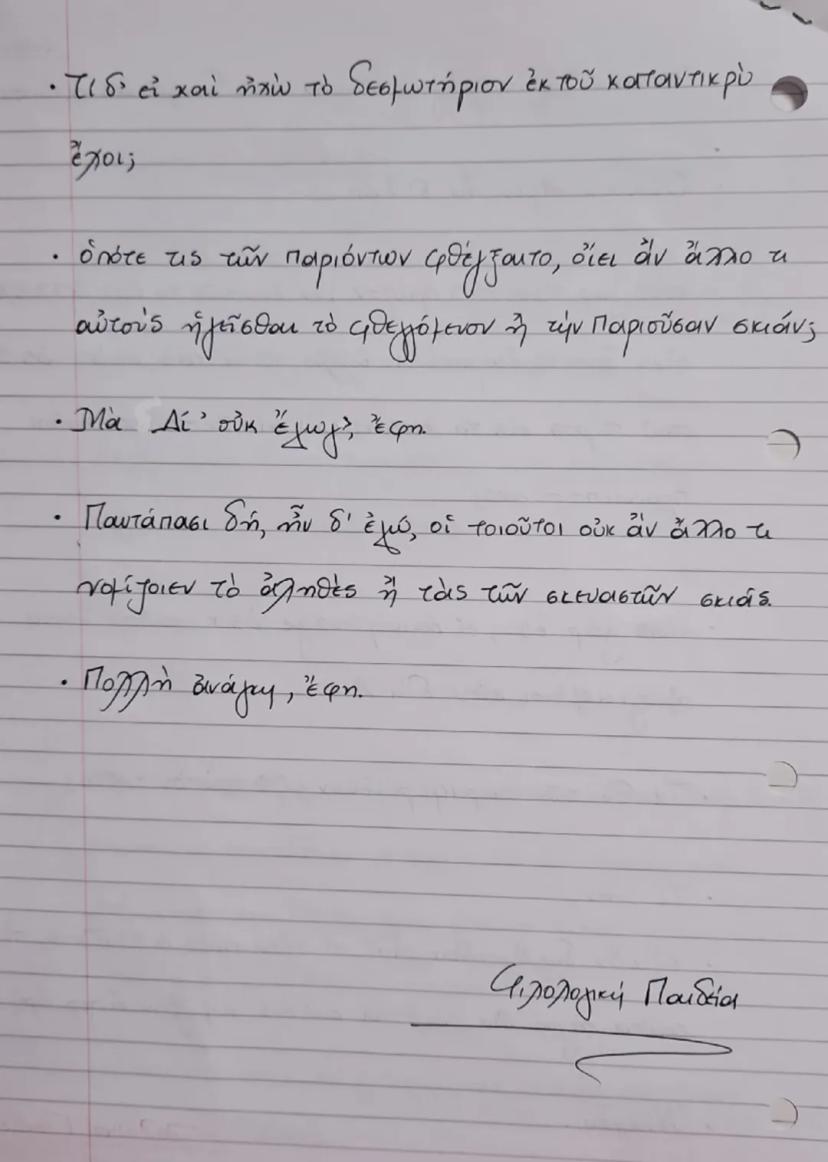 · Τί δ' εἰ καὶ ἠχὼ τὸ δεσμωτήριον ἐκ τοῦ καταντικρὺ
ἔχοι;
· ὁπότε τις τῶν παριόντων φθέγξαιτο, οἴει ἂν ἄλλο τι
αὐτοὺς ἡγεῖσθαι τὸ φθεγγόμενον ἢ τὴν παριοῦσαν σκιάν;
· Μὰ Δί' οὐκ ἔγωγ', ἔφη.
· Παντάπασι δή, ἦν δ' ἐγώ, οἱ τοιοῦτοι οὐκ ἂν ἄλλο τι
νομίζοιεν τὸ ἀληθὲς ἢ τὰς τῶν σκευαστῶν σκιάς.
· Πολλὴ ἀνάγκη, ἔφη.
Φιλολογική Παιδεία